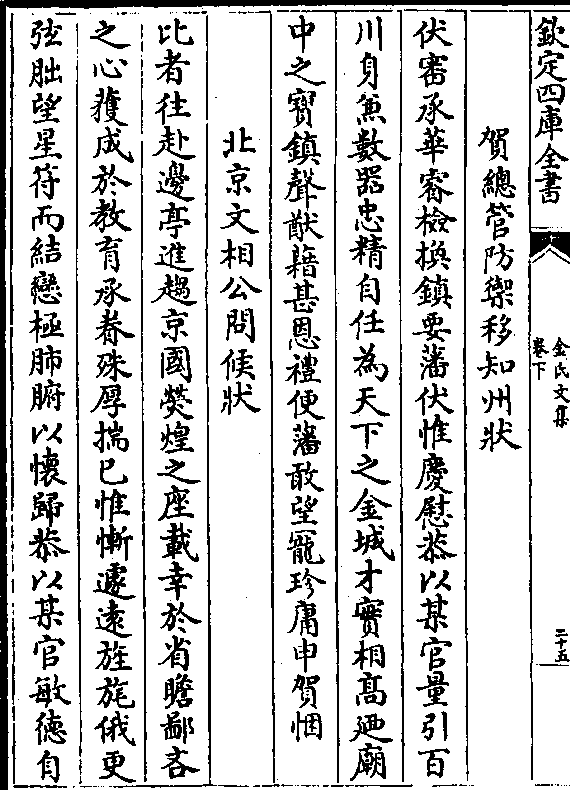 欽定四庫全書
金氏文集
卷下
二十五
賀總管防禦移知州狀
伏審承華睿檢換鎮要藩伏惟慶慰恭以某官量引百
川身兼數器忠精自任為天下之金城才實相高廼廟
中之寳鎮聲猷藉甚恩禮便藩敢望寵珍庸申賀悃
北京文相公問候狀
比者往赴邊亭進趨京國熒煌之座載幸於省瞻鄙吝
之心獲成於教育承眷殊厚揣已惟慚遽逺旌旄俄更
弦朏望星符而結戀極肺腑以懐歸恭以某官敏德自